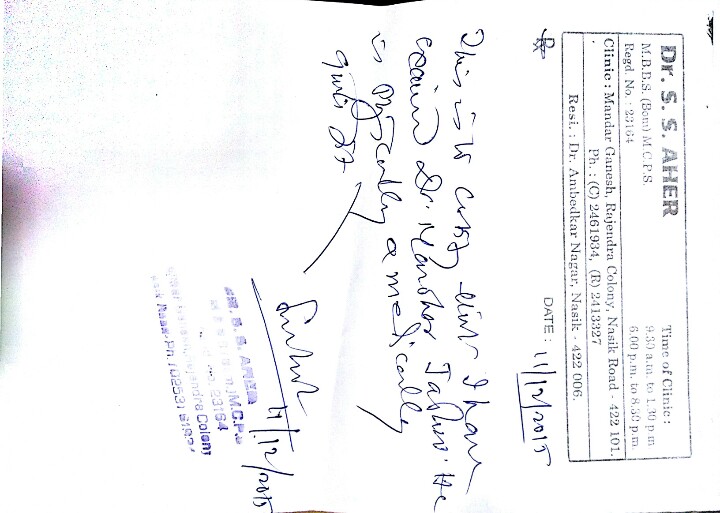 Dr. S. S. AHER
M.B.B.S. (Bom) M.C.P.S
Regd. No. : 23164
Time of Clinic :
9.30 a.m. to 1.30 p.m
6.00 p.m. to 8.30 p.m.
Clinic : Mandar Ganesh, Rajendra Colony, Nasik Road - 422 101.
Ph. : (C) 2461934, (R) 2413327
Resi. : Dr. Ambedkar Nagar, Nasik - 422 006.
Rx
DATE : 11/12/2015
This is to certify that I have
examined Dr. Manohar He
is Physically & medically
quite fit
11/12/2015
DR. S. S. AHER
M.C.P.S
23164
Colony
Nasik Road. Ph. (0253)